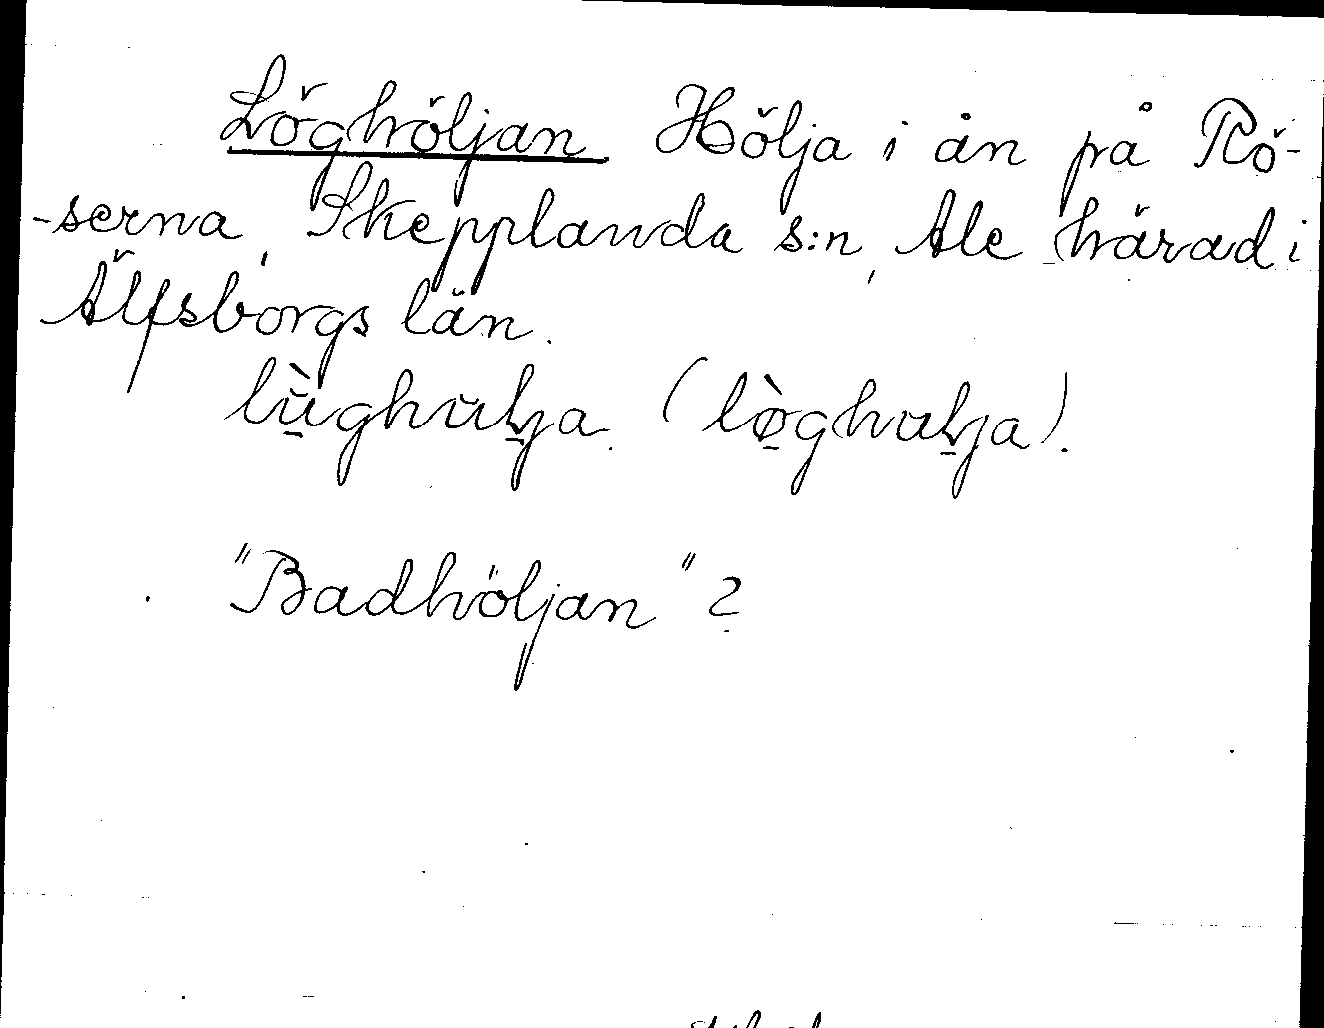 Löghöljan Hölja i ån på Rö-
-serna, Skepplanda s:n, Ale härad i
Älfsborgs län.
lùghulja. (lø̀ghulja).
"Badhöljan"?